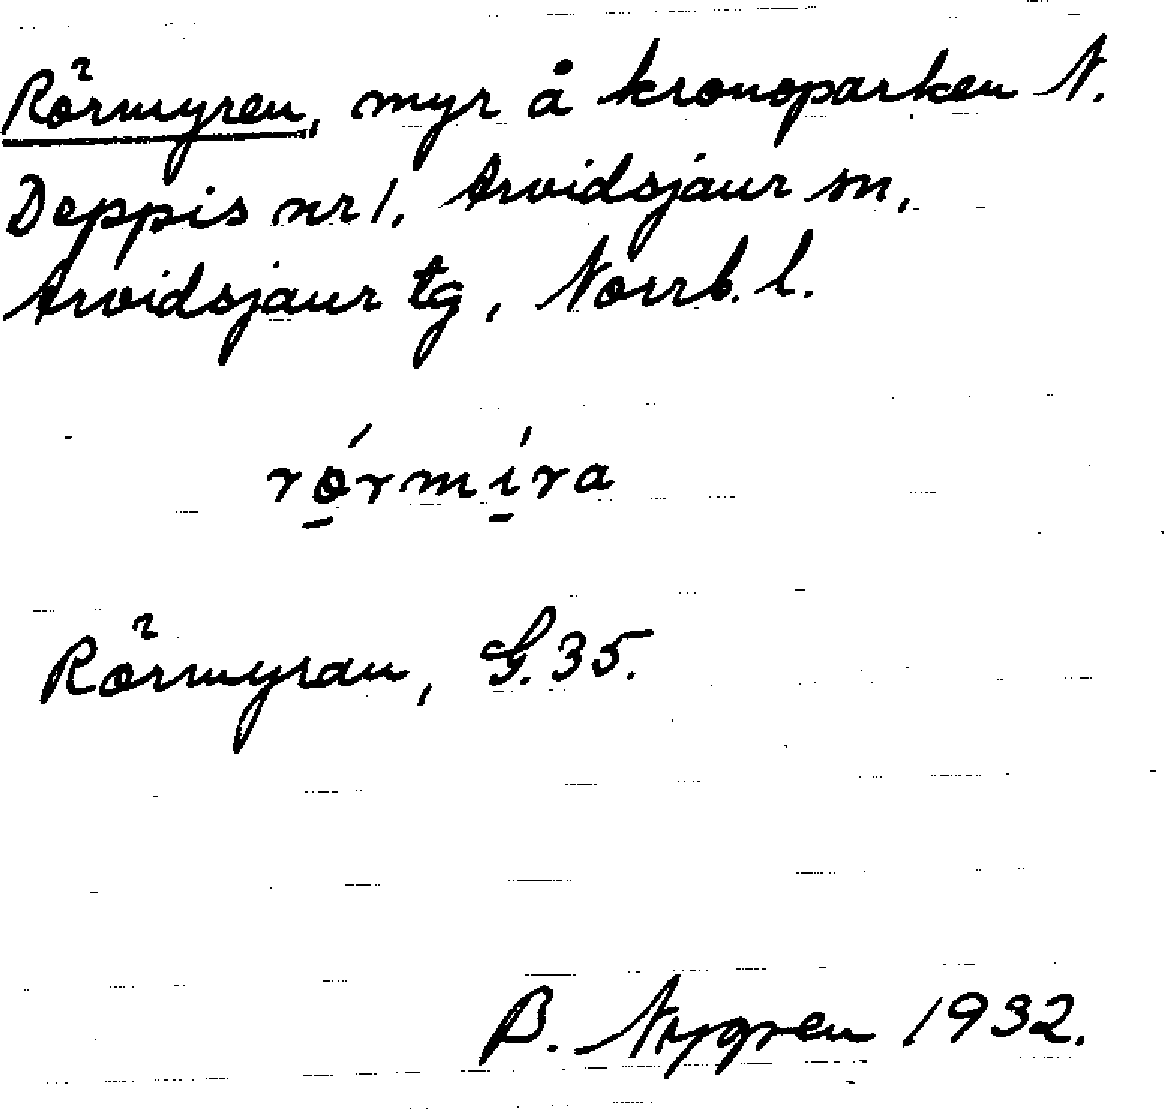 Rörmyren, myr å kronoparken N.
Deppis nr 1, Arvidsjaur sn,
Arvidsjaur tg, Norrb. l.
rö́rmí̱ra
Rörmyran, G. 35.
B. Nygren 1932.